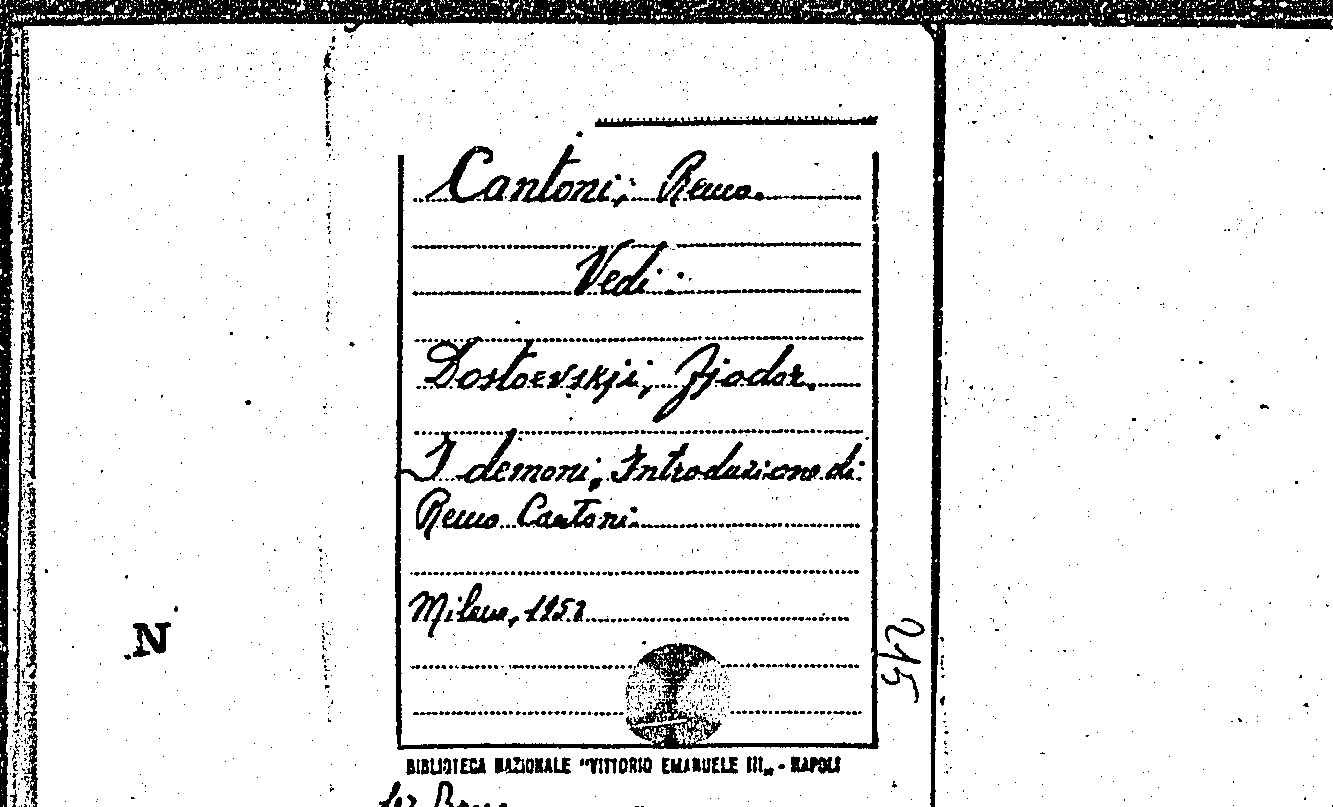 Cantoni, Remo.
Vedi:
Dostoevskji, Fjodor.
I demoni, Introduzione di
Remo Cantoni.
Milano, 1952
N
245
BIBLIOTECA NAZIONALE "VITTORIO EMANUELE III„ - NAPOLI